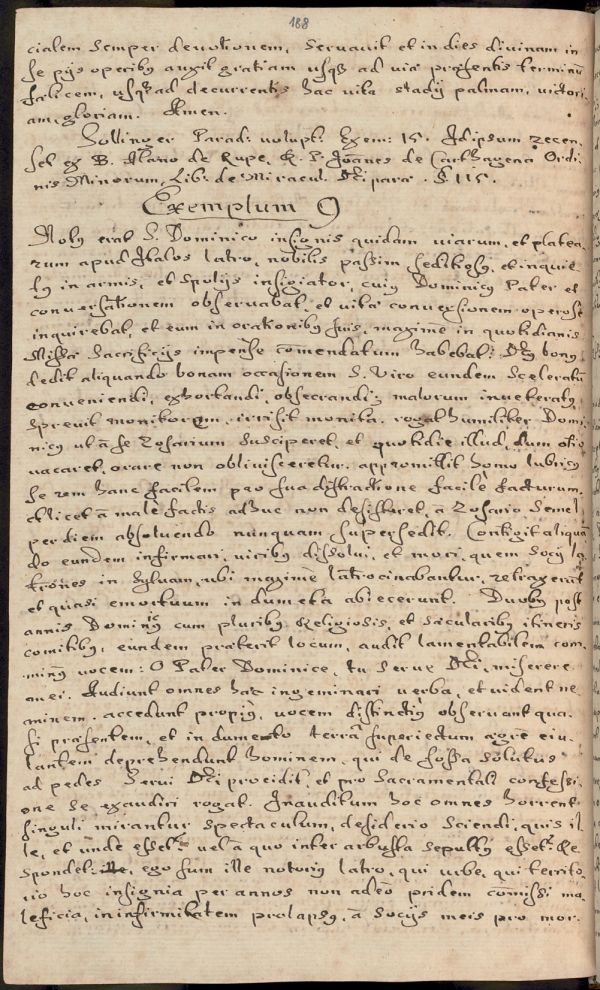 188
cialem semper deuotionem, seruauit et in dies diuinam in
se pijs operibꝰ auxit gratiam usqꝫ ad uiæ præsentis terminũ
fælicem, usqꝫ ad decurrentis hac uita stadij palmam, uictori-
am, gloriam. Amen.
Hollinger Parad: uolupt: Exem: 15. Idipsum recen-
set ex B. Alano de Rupe, R. P. Joanes de Carthagena Ordi-
nis Minorum, Lib: de Miracul. Dei paræ. §. 115.
Exemplum 9
Notꝰ erat S. Dominico insignis quidam uiarum, et platea-
rum apud Italos latro, nobilis passim seditiosꝰ, et inquie-
tꝰ in armis, et spolijs insigiator, cuiꝰ Dominicꝰ Pater et
conuersationem obseruabat, et uitæ conuersionem operose
inquirebat, et eum in orationibꝰ suis, maxime in quotidianis
Missæ sacrificijs impense comendatum habebat: Dꝰ bonꝰ
dedit aliquando bonam occasionem S. Viro eundem sceleratũ
conueniendi, exhortandi, obsecrandi; malorum inueteratꝰ
spreuit monitorem, irrisit monita. rogat humiliter Domi-
nicꝰ ut à se Rosarium susciperet, et quotidie illud, dum otio
uacaret, orare non obliuisceretur. appromittit homo lubricꝰ
se rem hanc facilem pro sua distractione facile facturum.
et licet à male factis adhuc non desisteret, à Rosario semel
per diem absoluendo nunquam supersedit. Contigit aliquã
do eundem infirmari, uiribꝰ dissolui, et mori, quem socij la-
trones in syluam, ubi maxime latrocinabantur, retraxerũt
et quasi emortuum in dumeta abiecerunt. Duobꝰ post
annis Dominicꝰ cum pluribꝰ Religiosis, et sæcularibꝰ itineris
comitibꝰ, eundem præterit locum, audit lamentabilem com-
minꝰ uocem: O Pater Dominice, tu serue Dei, miserere
mei. Audiunt omnes hæc ingeminari uerba, et uident ne-
minem. accedunt propiꝰ, uocem distinctiꝰ obseruant qua-
si præsentem, et in dumeto terra superiectum ægre eiu-
lantem deprehendunt hominem, qui de fossa solutus
ad pedes serui Dei procidit, et pro sacramentali confessi-
one se exaudiri rogat. Inauditum hoc omnes horrent
singuli mirantur spectaculum, desiderio sciendi, quis il-
le, et unde esset, uel à quo inter arbusta sepultꝰ esset. Re-
spondet: ille, ego sum ille notoriꝰ latro, qui urbe, qui territo-
rio hoc insignia per annos non adeo pridem comissi ma-
leficia, in infirmitatem prolapsꝰ, à socijs meis pro mor-